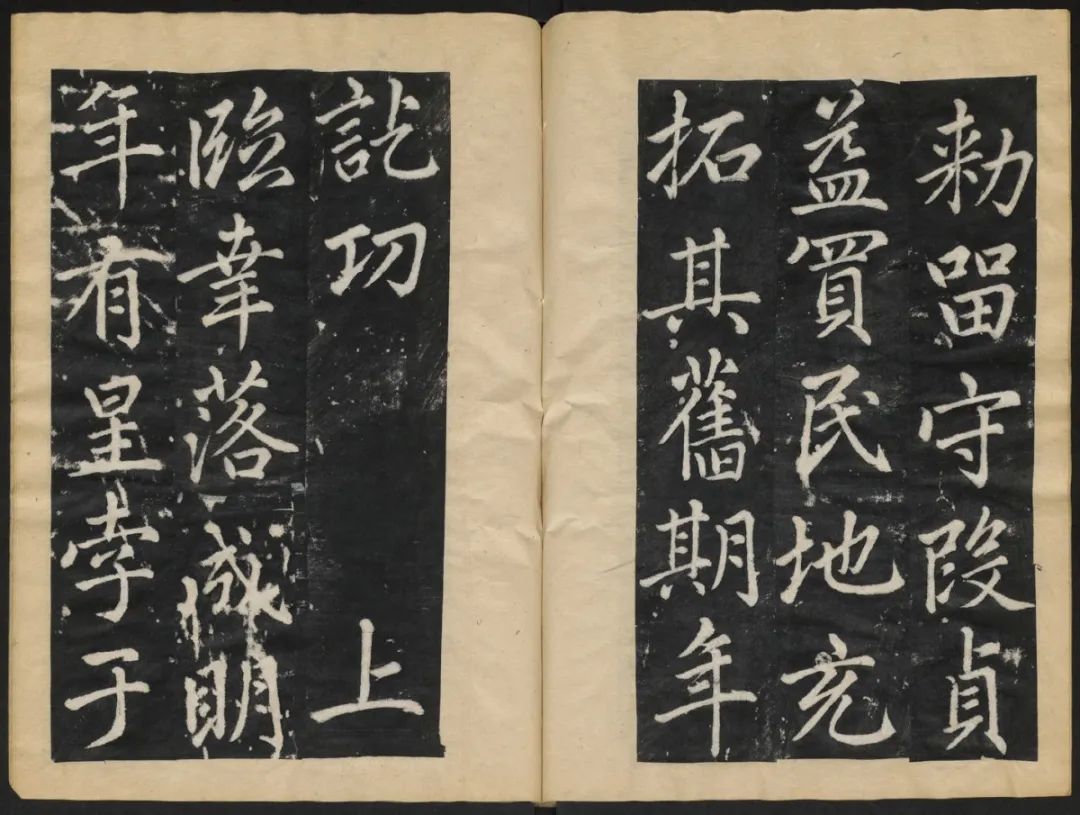 勅留守段貞
益買民地充
拓其舊期年
訖功　上
臨幸落成明
年有星孛于